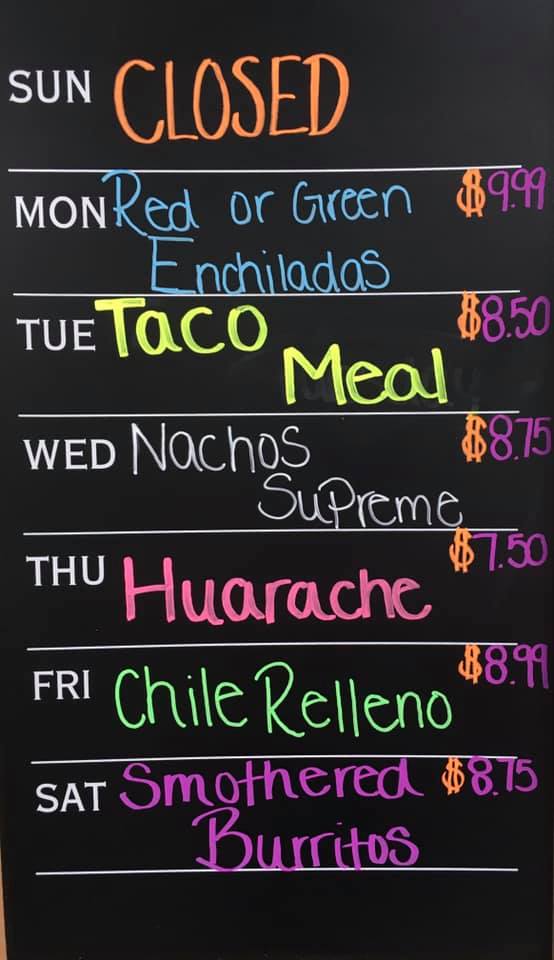 SUN CLOSED
MON Red or Green $9.99
Enchiladas
TUE Taco $8.50
Meal
WED Nachos $8.75
SuPreme
THU Huarache $7.50
FRI Chile Relleno $8.99
SAT Smothered $8.75
Burritos